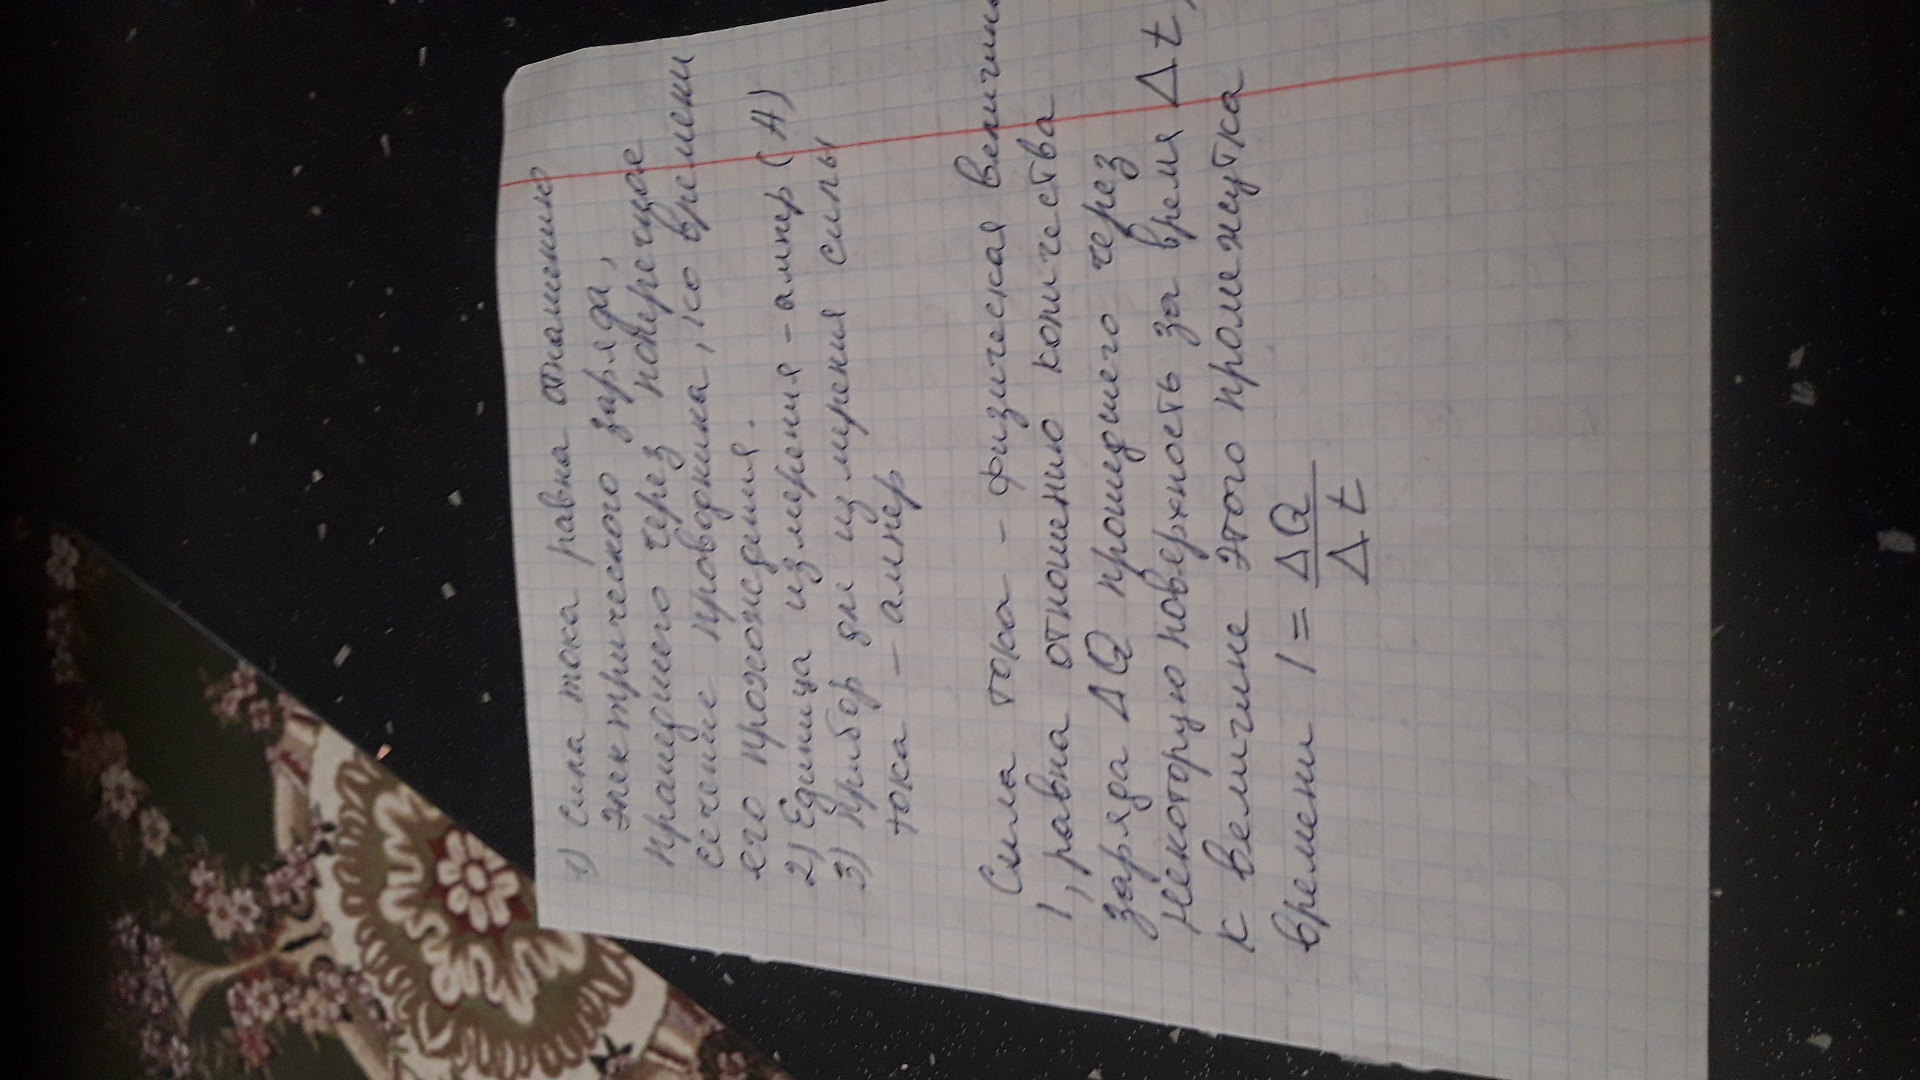 1) Сила тока равна отношению
электрического заряда,
прошедшего через поперечное
сечение проводника, ко времени
его прохождения.
2) Единица измерения - ампер (А)
3) Прибор для измерения силы
тока - ампер
Сила тока - физическая величина
I, равна отношению количества
заряда ΔQ прошедшего через
некоторую поверхность за время Δt,
к величине этого промежутка
времени I = ΔQ / Δt